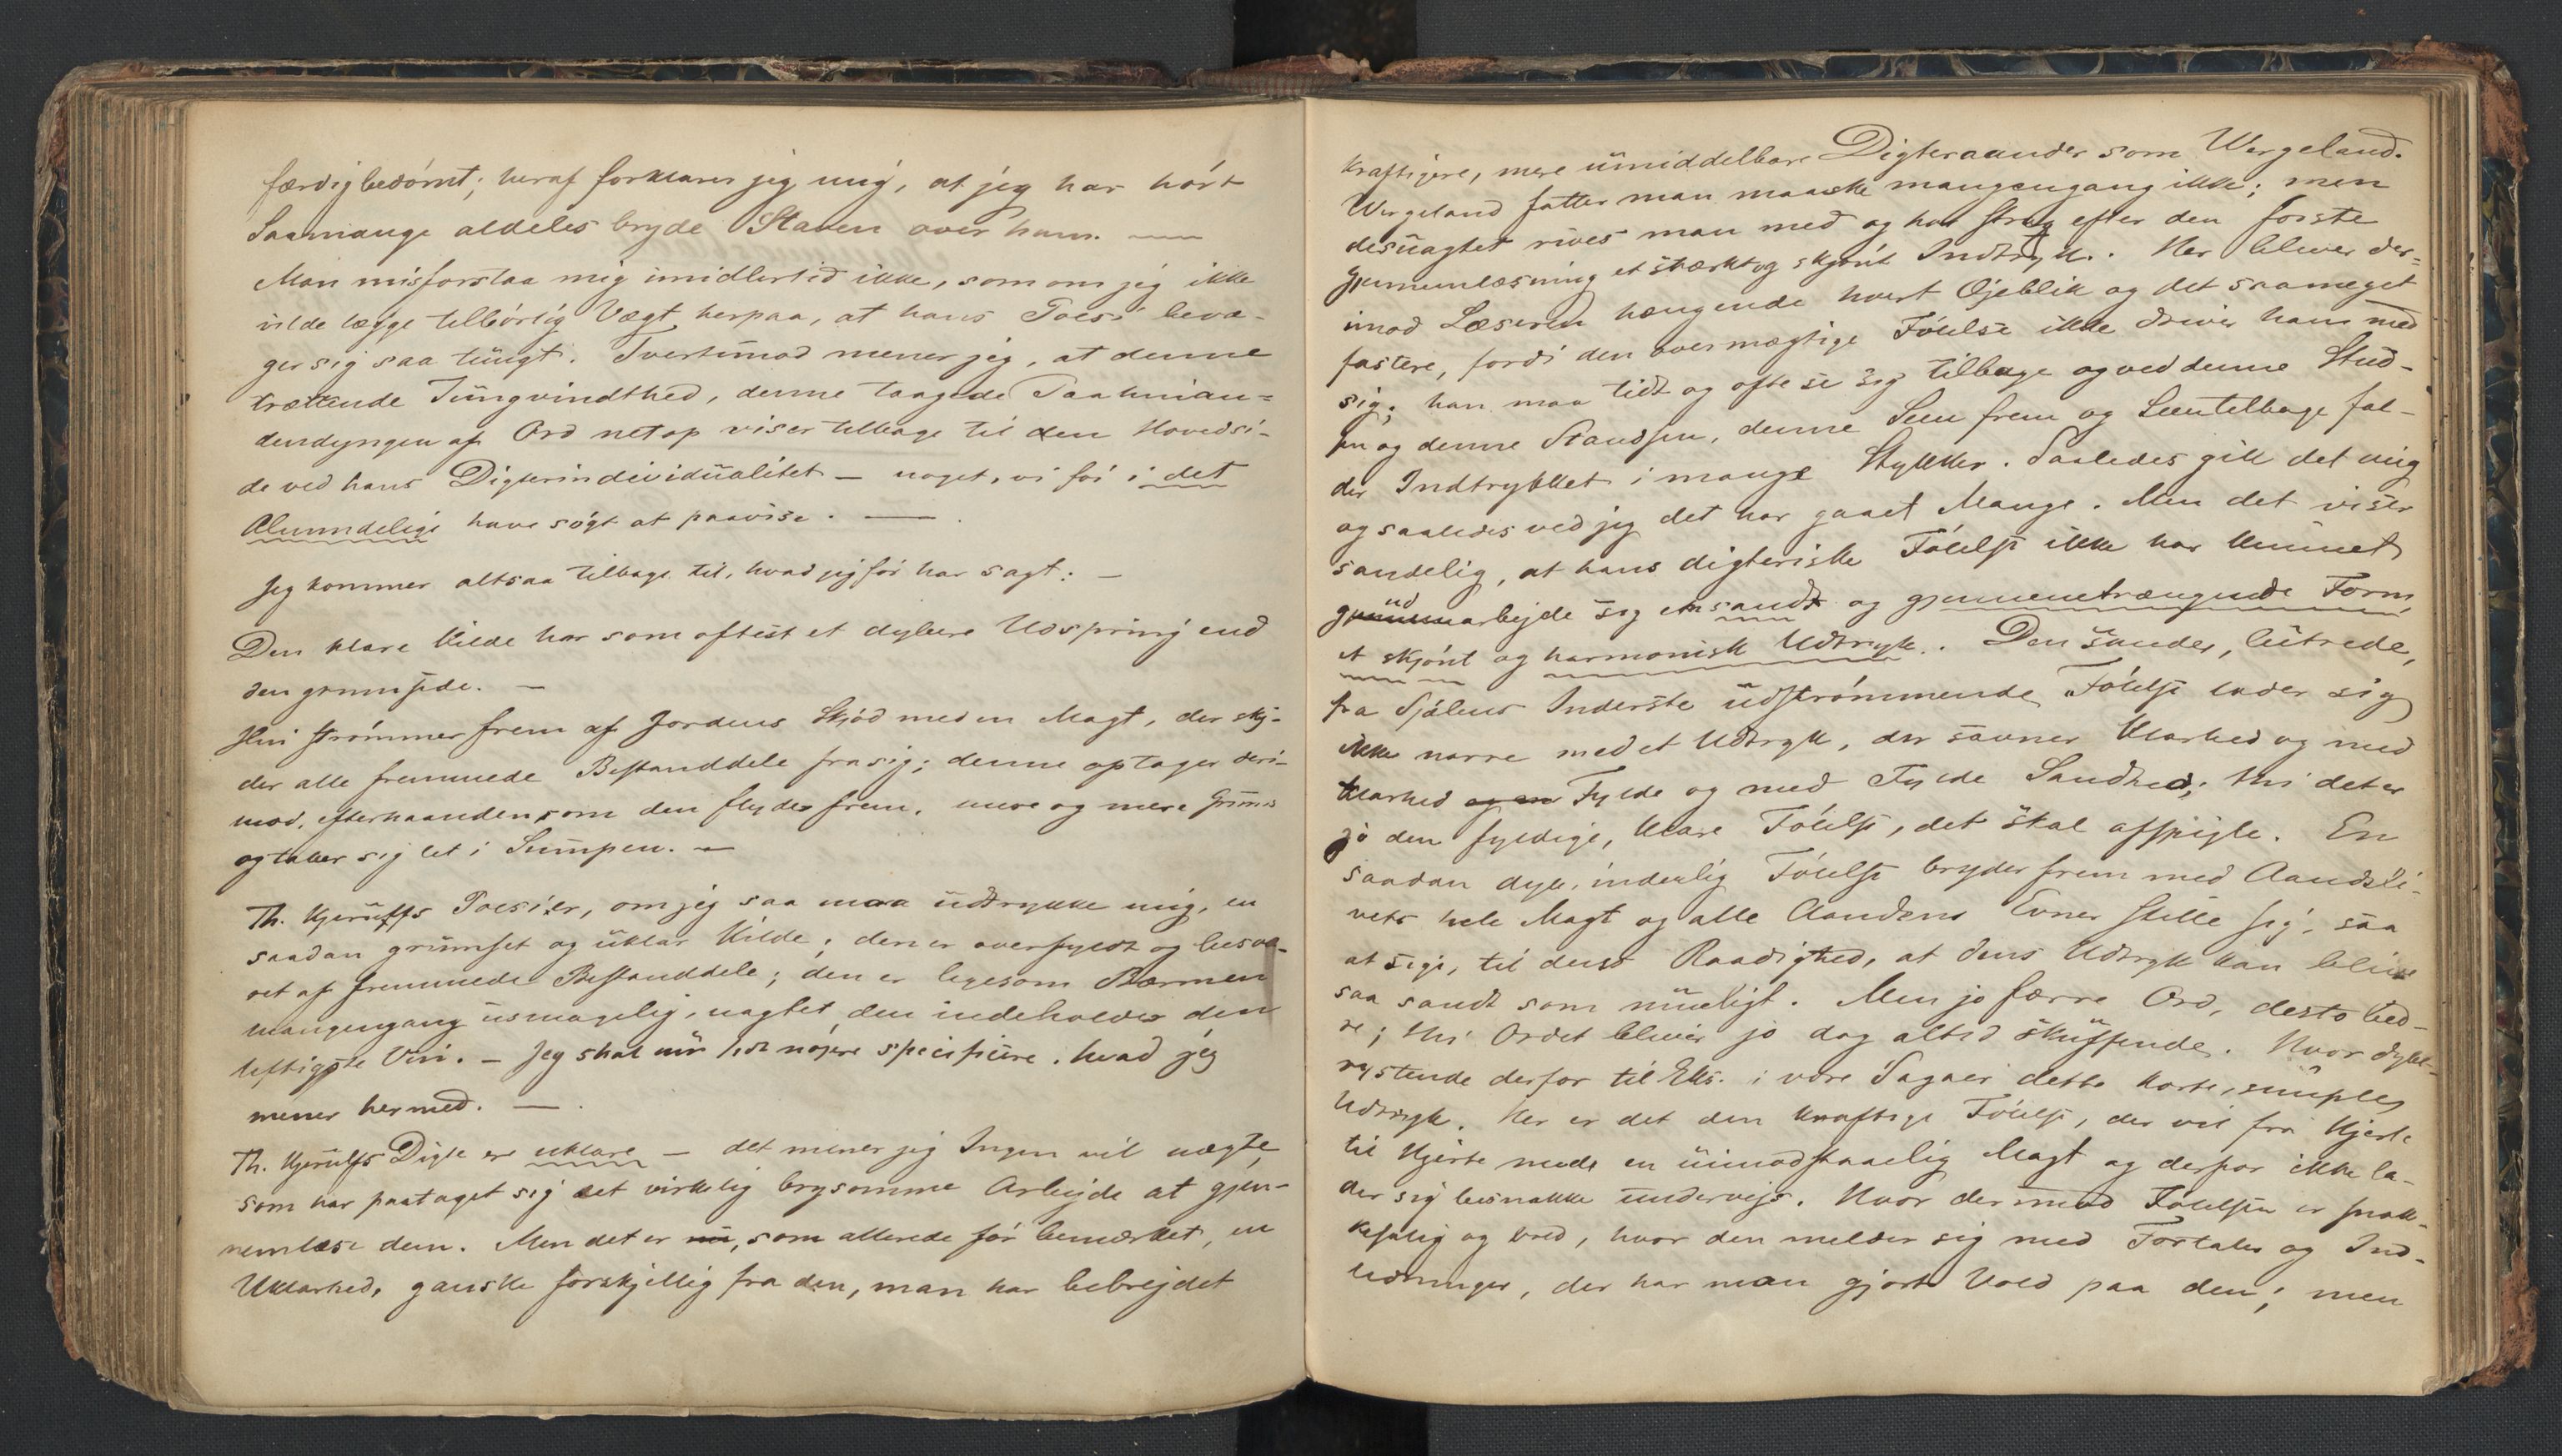 færdigbedømt; heraf forklarer jeg mig, at jeg har hørt
Saamange aldeles bryde Staven over ham. —
Man misforstaa mig imidlertid ikke, som om jeg ikke
vilde lægge tilbørlig Vægt herpaa, at hans Poesi bevæ-
ger sig saa tungt. Tvertimod mener jeg, at denne
trættende Tungvindthed, denne taagede Paahinan-
dendyngen af Ord netop viser tilbage til den Hovedsi-
de ved hans Digterindividualitet — noget, vi før i det
Almindelige have søgt at paavise. —
Jeg kommer altsaa tilbage til, hvad jeg før har sagt: —
Den klare Kilde har som oftest et dybere Udspring end
den grumsede. —
Hin strømmer frem af Jordens Skjød med en Magt, der sky-
der alle fremmede Bestanddele fra sig; denne optager deri-
mod, efterhaanden som den flyder frem, mere og mere Grums
og taber sig let i Sumpen. —
Th. Kjerulfs Poesi er, om jeg saa maa udtrykke mig, en
saadan grumset og uklar Kilde; den er overfyldt og besvæ-
ret af fremmede Bestanddele; den er ligesom Bærmen
mangengang usmagelig, uagtet den indeholder den
kraftigste Vin. — Jeg skal nu lidt nøjere specificere, hvad jeg
mener hermed. —
Th. Kjerulfs Digte er uklare — det mener jeg Ingen vil nægte,
som har paataget sig det virkelig brysomme Arbejde at gjen-
nemlæse dem. Men det er nu, som allerede før bemærket, en
Uklarhed, ganske forskjellig fra den, man har bebrejdet
kraftigere, mere umiddelbare Digteraander som Wergeland.
Wergeland fatter man maaske mangengang ikke; men
desuagtet rives man med og har strax efter den første
Gjennemlæsning et stærkt og skjønt Indtryk. Her bliver der-
imod Læseren hængende hvert Øjeblik og det saameget
fastere, fordi den overmægtige Følelse ikke driver ham med
sig; han maa tidt og ofte se sig tilbage og ved denne Stud-
sen og denne Standsen, denne Seen frem og Seentilbage fal-
der Indtrykket i mange Stykker. Saaledes gik det mig
og saaledes ved jeg det har gaaet Mange. Men det viser
sandelig, at hans digteriske Følelse ikke har kunnet
ud
gjennemarbejde sig en sand og gjennemtrængende Form,
et skjønt og harmonisk Udtryk. Den sande, lutrede,
fra Sjælens Inderste udstrømmende Følelse lader sig
ikke narre med et Udtryk, der savner Klarhed og med
Klarhed og en Fylde og med Fylde Sandhed; thi det er
jo den fyldige, klare Følelse, det skal afspejle. En
saadan dyb, inderlig Følelse bryder frem med Aandsli-
vets hele Magt og alle Aandens Evner stille sig, saa
at sige, til dens Raadighed, at dens Udtryk kan blive
saa sandt som muligt. Men jo færre Ord, desto bed-
re; thi Ordet bliver jo dog altid skuffende. Hvor dybt-
rystende derfor til Eks. i vore Sagaer dette korte, simple
Udtryk. Her er det den kraftige Følelse, der vil fra Hjerte
til Hjerte med en uimodstaaelig Magt og derfor ikke la-
der sig besnakke undervejs. Hvor derimod Følelsen er snak-
kesalig og bred, hvor den melder sig med Fortaler og Ind-
ledninger, der har man gjort Vold paa den; men